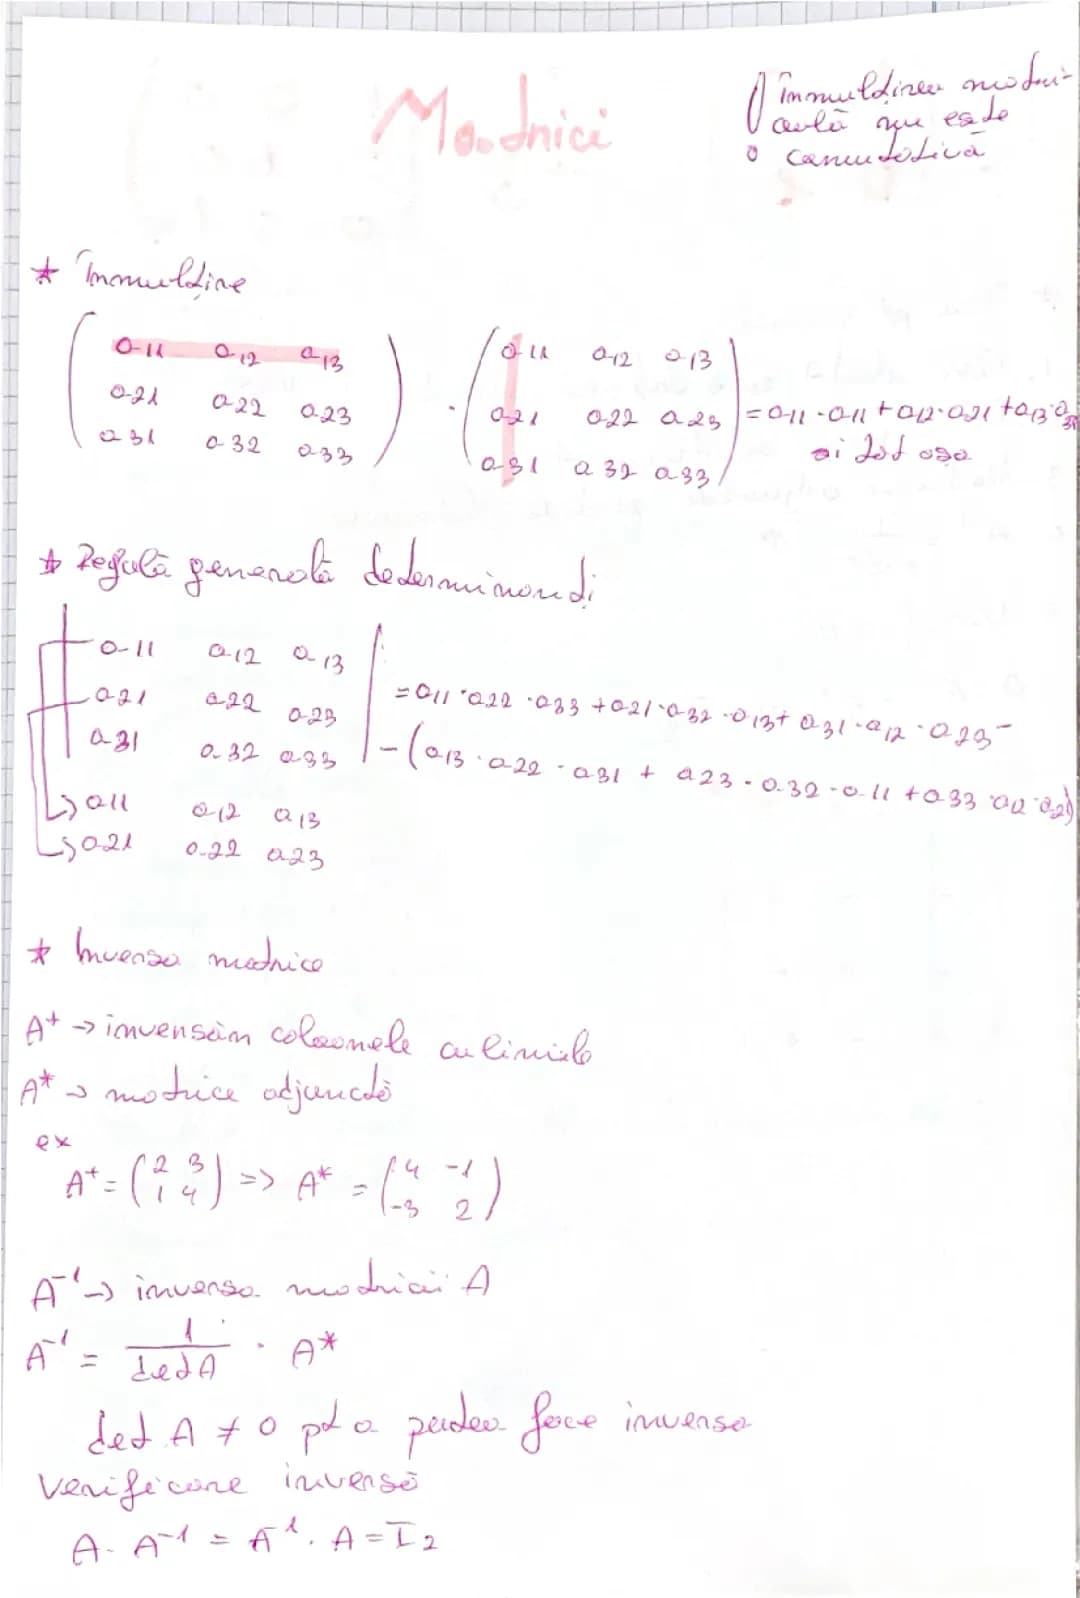 Matrici
! înmulțirea matri-
ceală nu este
comutativă
* înmulțire
( a11 a12 a13 ) · ( a11 a12 a13 )
( a21 a22 a23 ) · ( a21 a22 a23 ) = a11·a11 + a12·a21 + a13·a31
( a31 a32 a33 ) ( a31 a32 a33 ) și tot așa
* Regulă generală determinanți
| a11 a12 a13 |
| a21 a22 a23 | = a11·a22·a33 + a21·a32·a13 + a31·a12·a23 -
| a31 a32 a33 | - (a13·a22·a31 + a23·a32·a11 + a33·a12·a21)
↳ a11 a12 a13
↳ a21 a22 a23
* Inversa matrice
A^t → inversăm coloanele cu liniile
A* → matrice adjunctă
ex
A^t = ( 2 3 ) => A* = ( 4 -1 )
( 1 4 ) ( -3 2 )
A^-1 → inversa matricii A
A^-1 = 1/det A · A*
det A ≠ 0 pt a putea face inversa
Verificare inversă
A · A^-1 = A^-1 · A = I2